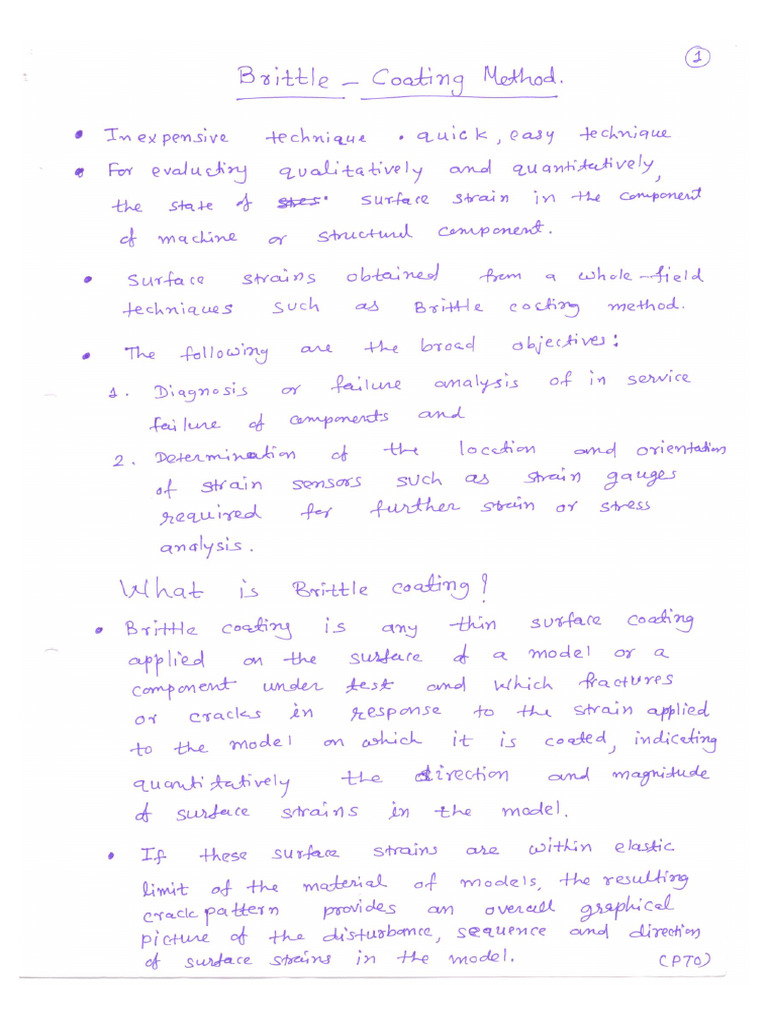 1
Brittle - Coating Method.
• Inexpensive technique • quick, easy technique
• For evaluating qualitatively and quantitatively,
the state of stres. surface strain in the component
of machine or structural component.
• Surface strains obtained from a whole-field
techniques such as Brittle coating method.
• The following are the broad objectives:
1. Diagnosis or failure analysis of in service
failure of components and
2. Determination of the location and orientation
of strain sensors such as strain gauges
required for further strain or stress
analysis.
What is Brittle coating?
• Brittle coating is any thin surface coating
applied on the surface of a model or a
component under test and which fractures
or cracks in response to the strain applied
to the model on which it is coated, indicating
quantitatively the direction and magnitude
of surface strains in the model.
• If these surface strains are within elastic
limit of the material of models, the resulting
crack pattern provides an overall graphical
picture of the disturbance, sequence and direction
of surface strains in the model.
(PTO)